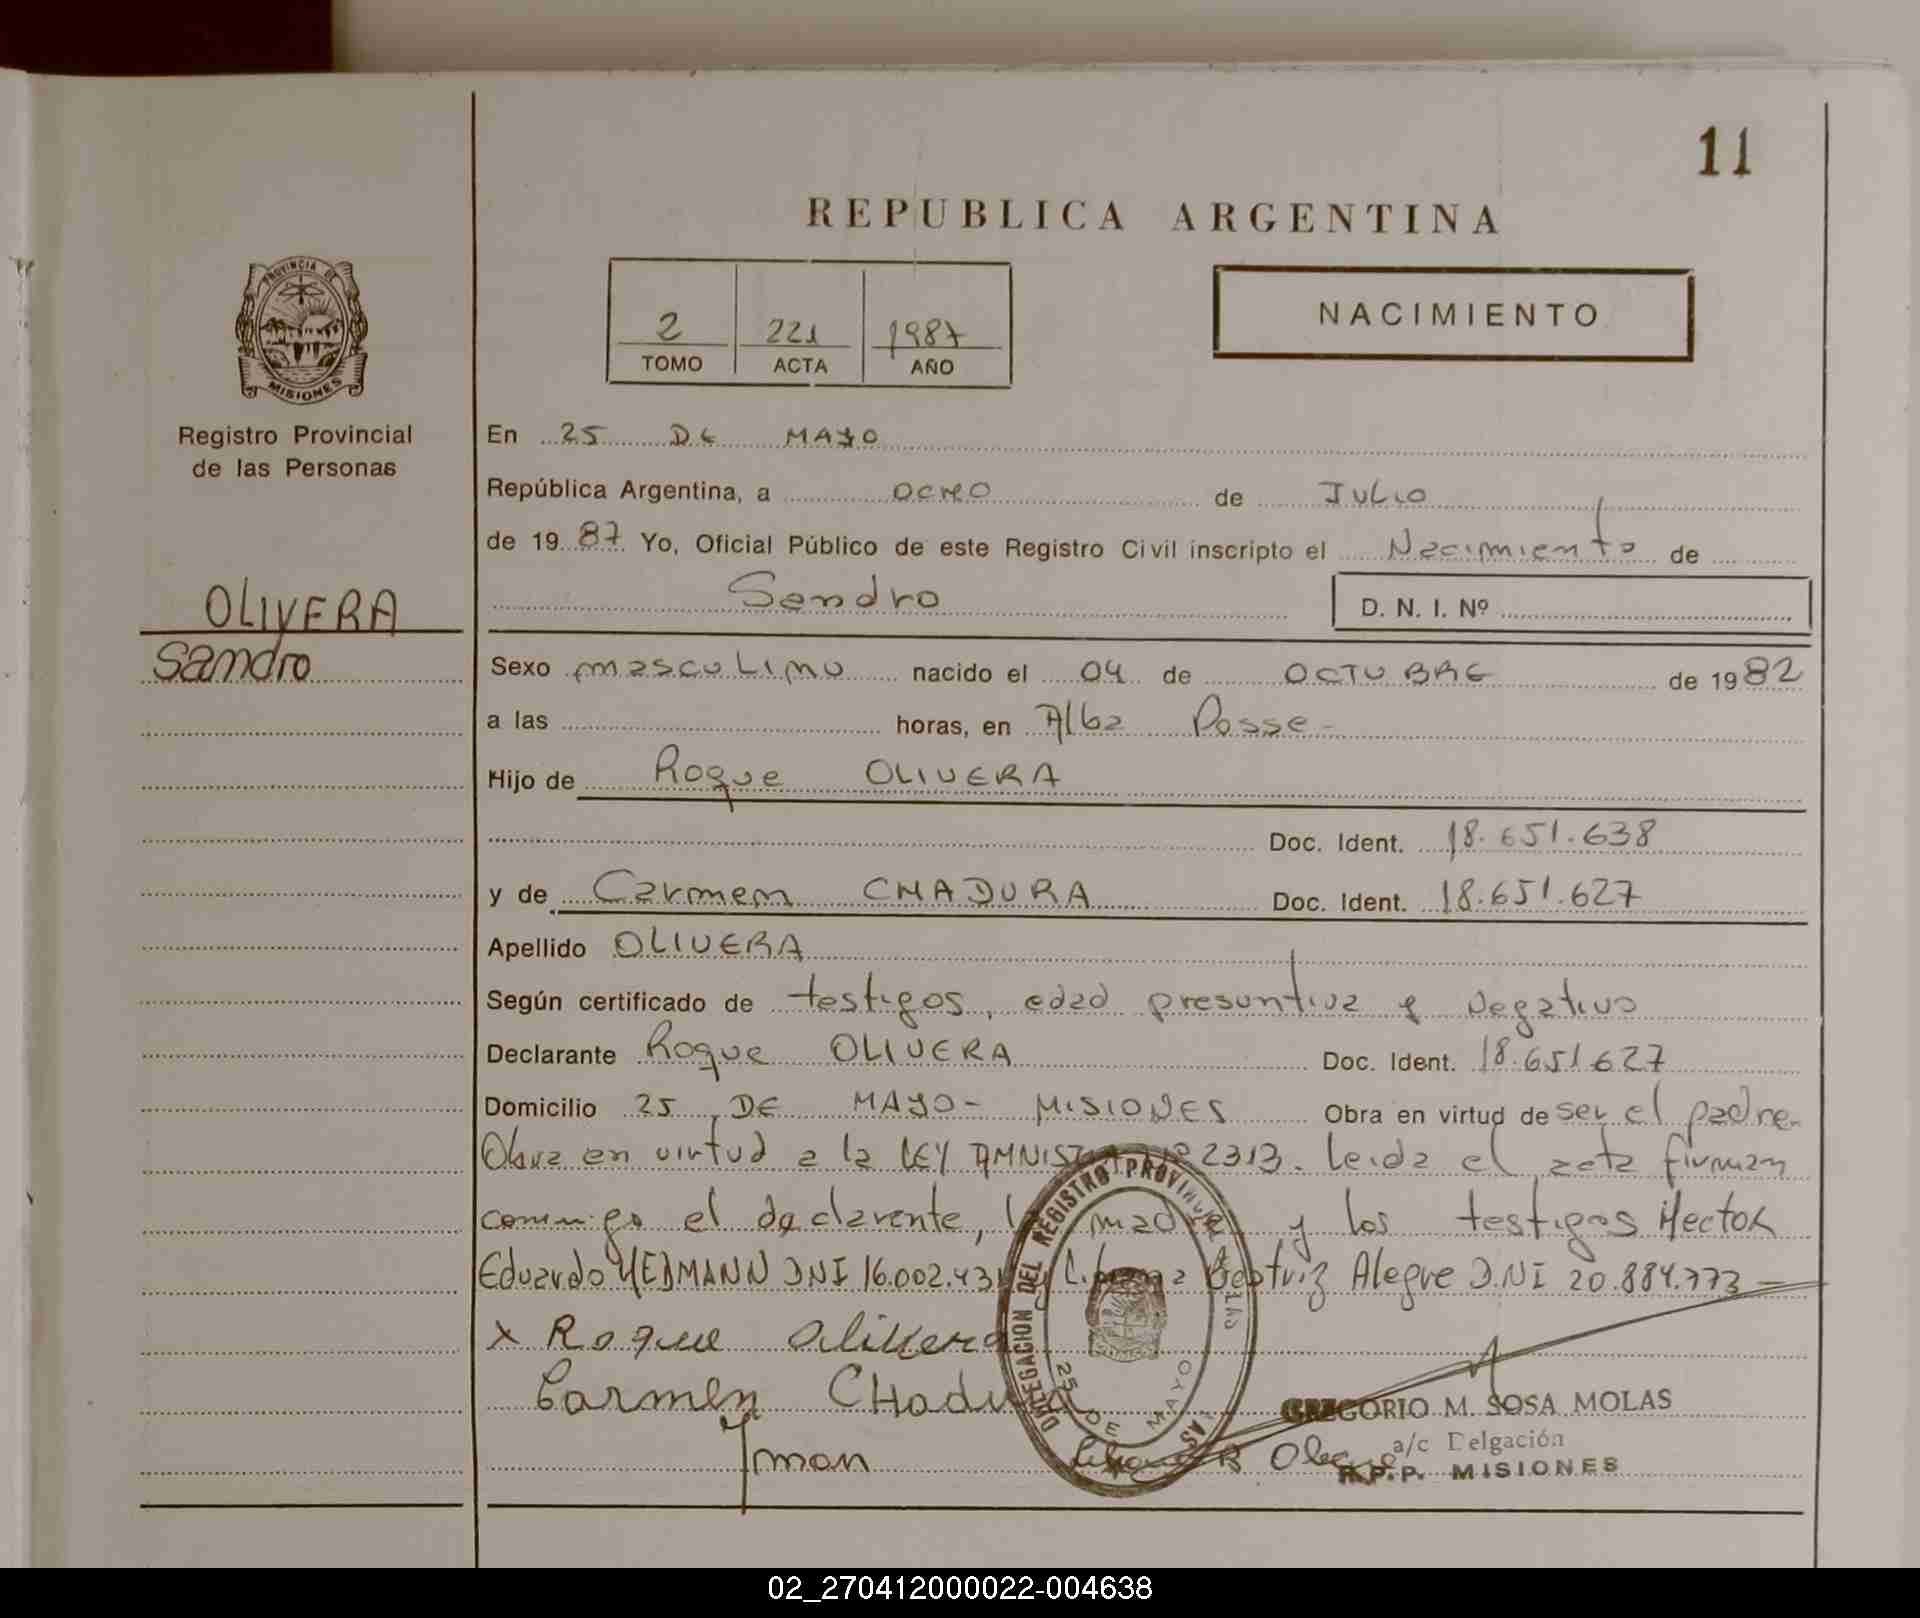 11
REPUBLICA ARGENTINA
PROVINCIA DE
MISIONES
2 221 1987
TOMO ACTA AÑO
NACIMIENTO
Registro Provincial
de las Personas
En 25 DE MAYO
República Argentina, a OCHO de JULIO
de 1987 Yo, Oficial Público de este Registro Civil inscripto el Nacimiento de
Sandro D. N. I. Nº
OLIVERA
Sandro
Sexo masculino nacido el 04 de OCTUBRE de 1982
a las horas, en Alba Posse-
Hijo de Roque OLIVERA
Doc. Ident. 18.651.638
y de Carmen CHADURA Doc. Ident. 18.651.627
Apellido OLIVERA
Según certificado de testigos, edad presuntiva y Negativo
Declarante Roque OLIVERA Doc. Ident. 18.651627
Domicilio 25 DE MAYO- MISIONES Obra en virtud de ser el padre-
Obra en virtud a la LEY AMNISTIA Nº 2313. Leida el acta firman
conmigo el declarente, la madre y los testigos Hector
Eduardo DNI 16.002.431 y Liliana Beatriz Alegre D.NI 20.884.773
x Roque olivera
Carmen CHadura
DELEGACION DEL REGISTRO PROVINCIAL DE LAS
25 DE MAYO
GREGORIO M. SOSA MOLAS
a/c Delgación
R.P.P. MISIONES
02_270412000022-004638